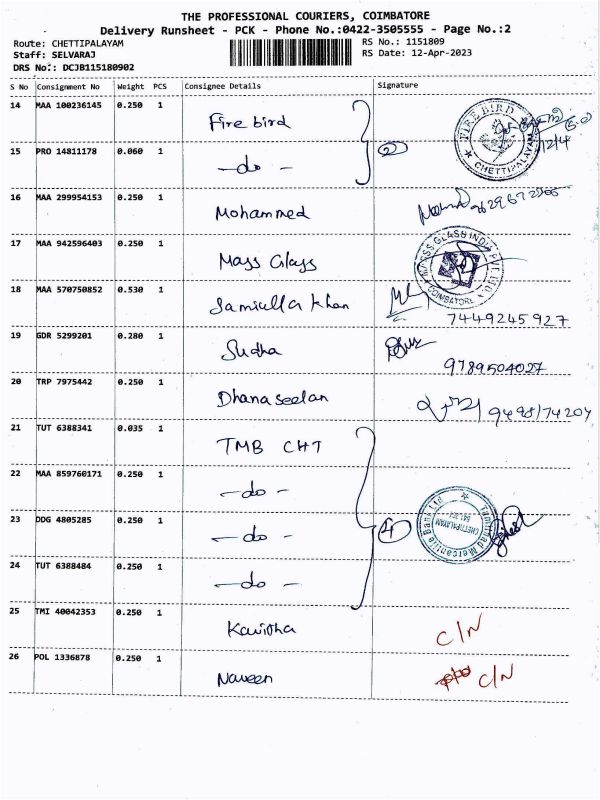 THE PROFESSIONAL COURIERS, COIMBATORE
Delivery Runsheet - PCK - Phone No.:0422-3505555 - Page No.:2
Route: CHETTIPALAYAM
Staff: SELVARAJ
DRS No: DCJB115180902
RS No.: 1151809
RS Date: 12-Apr-2023
S No Consignment No Weight PCS Consignee Details Signature
14 MAA 100236145 0.250 1 Fire bird
FIRE BIRD
CHETTIPALAYAM
12/4
15 PRO 14811178 0.060 1 -do- 2
16 MAA 299954153 0.250 1 Mohammed
17 MAA 942596403 0.250 1 Mass Glass
COIMBATORE
18 MAA 570750852 0.530 1 Samiulla Khan
7449245927
19 GDR 5299201 0.280 1 Sudha
9789504027
20 TRP 7975442 0.250 1 Dhanaseelan
21 TUT 6388341 0.035 1 TMB CHT
22 MAA 859760171 0.250 1 -do-
Tamilnad Mercantile Bank Ltd
CHETTIPALAYAM
23 DDG 4805285 0.250 1 -do- 4
24 TUT 6388484 0.250 1 -do-
25 TMI 40042353 0.250 1 Kavitha C/N
26 POL 1336878 0.250 1 Naveen C/N